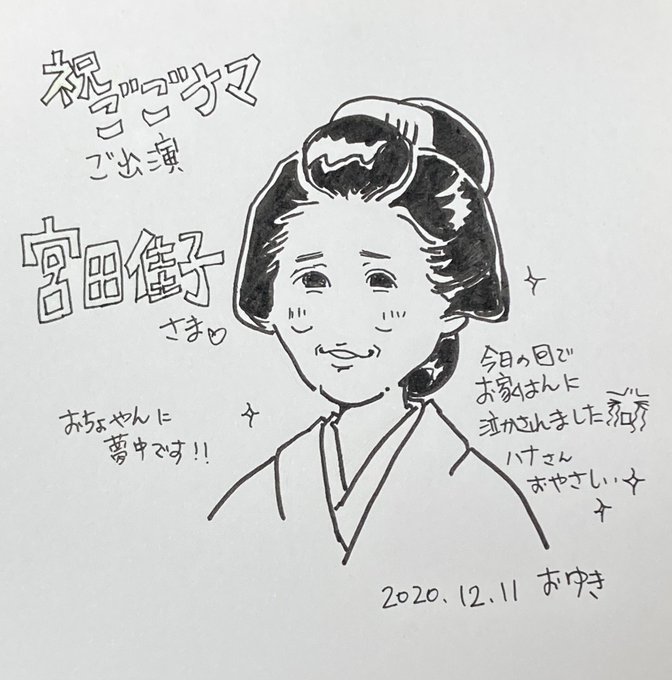 祝ごごナマ
ご出演
宮田佳子
さま♡
おちょやんに
夢中です!!
今日の回で
お家はんに
泣かされました
ハナさん
おやさしい…
2020.12.11 おゆき